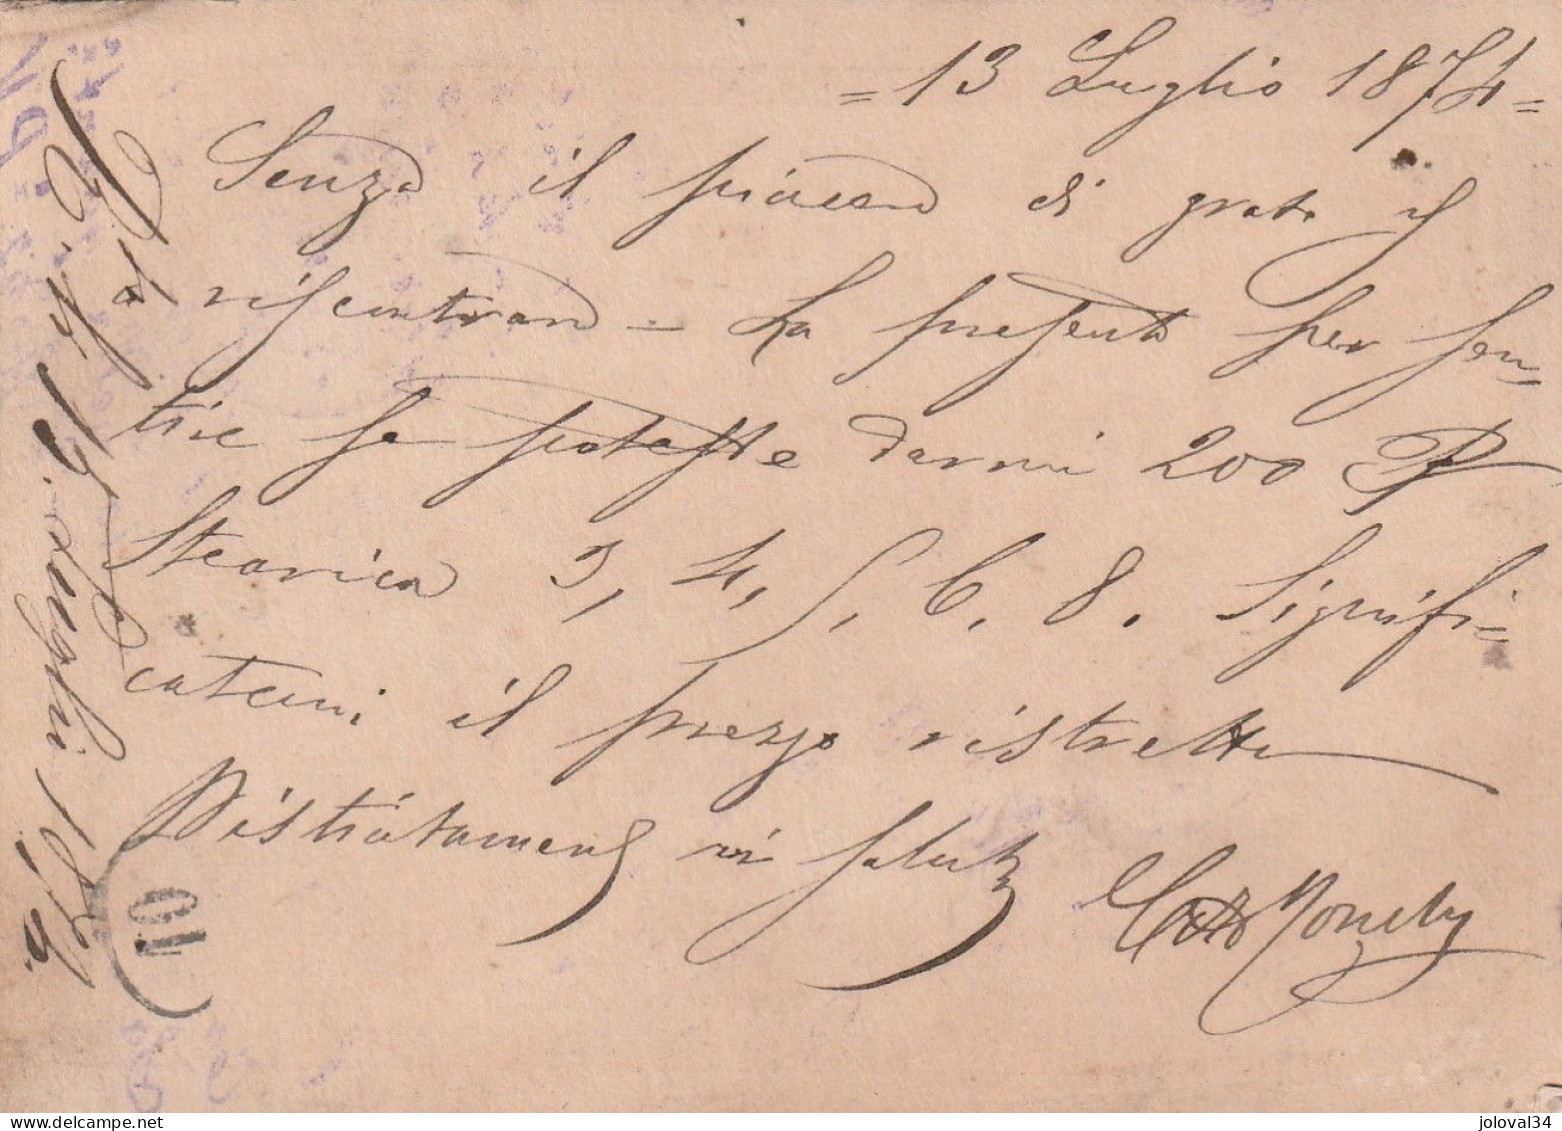 = 13 Luglio 1874 =
Senza il piacere di grata
a riscontrare = La presente per sen=
tire se poteste darmi 200 P
Stearica 3, 4, 5, 6. 8. Signifi=
catemi il prezzo ristretto
Distintamente vi saluto
10
Luglio 187
joloval34